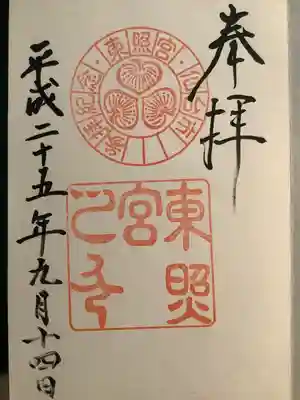 奉拝
東照宮
東照宮
平成二十五年九月十四日